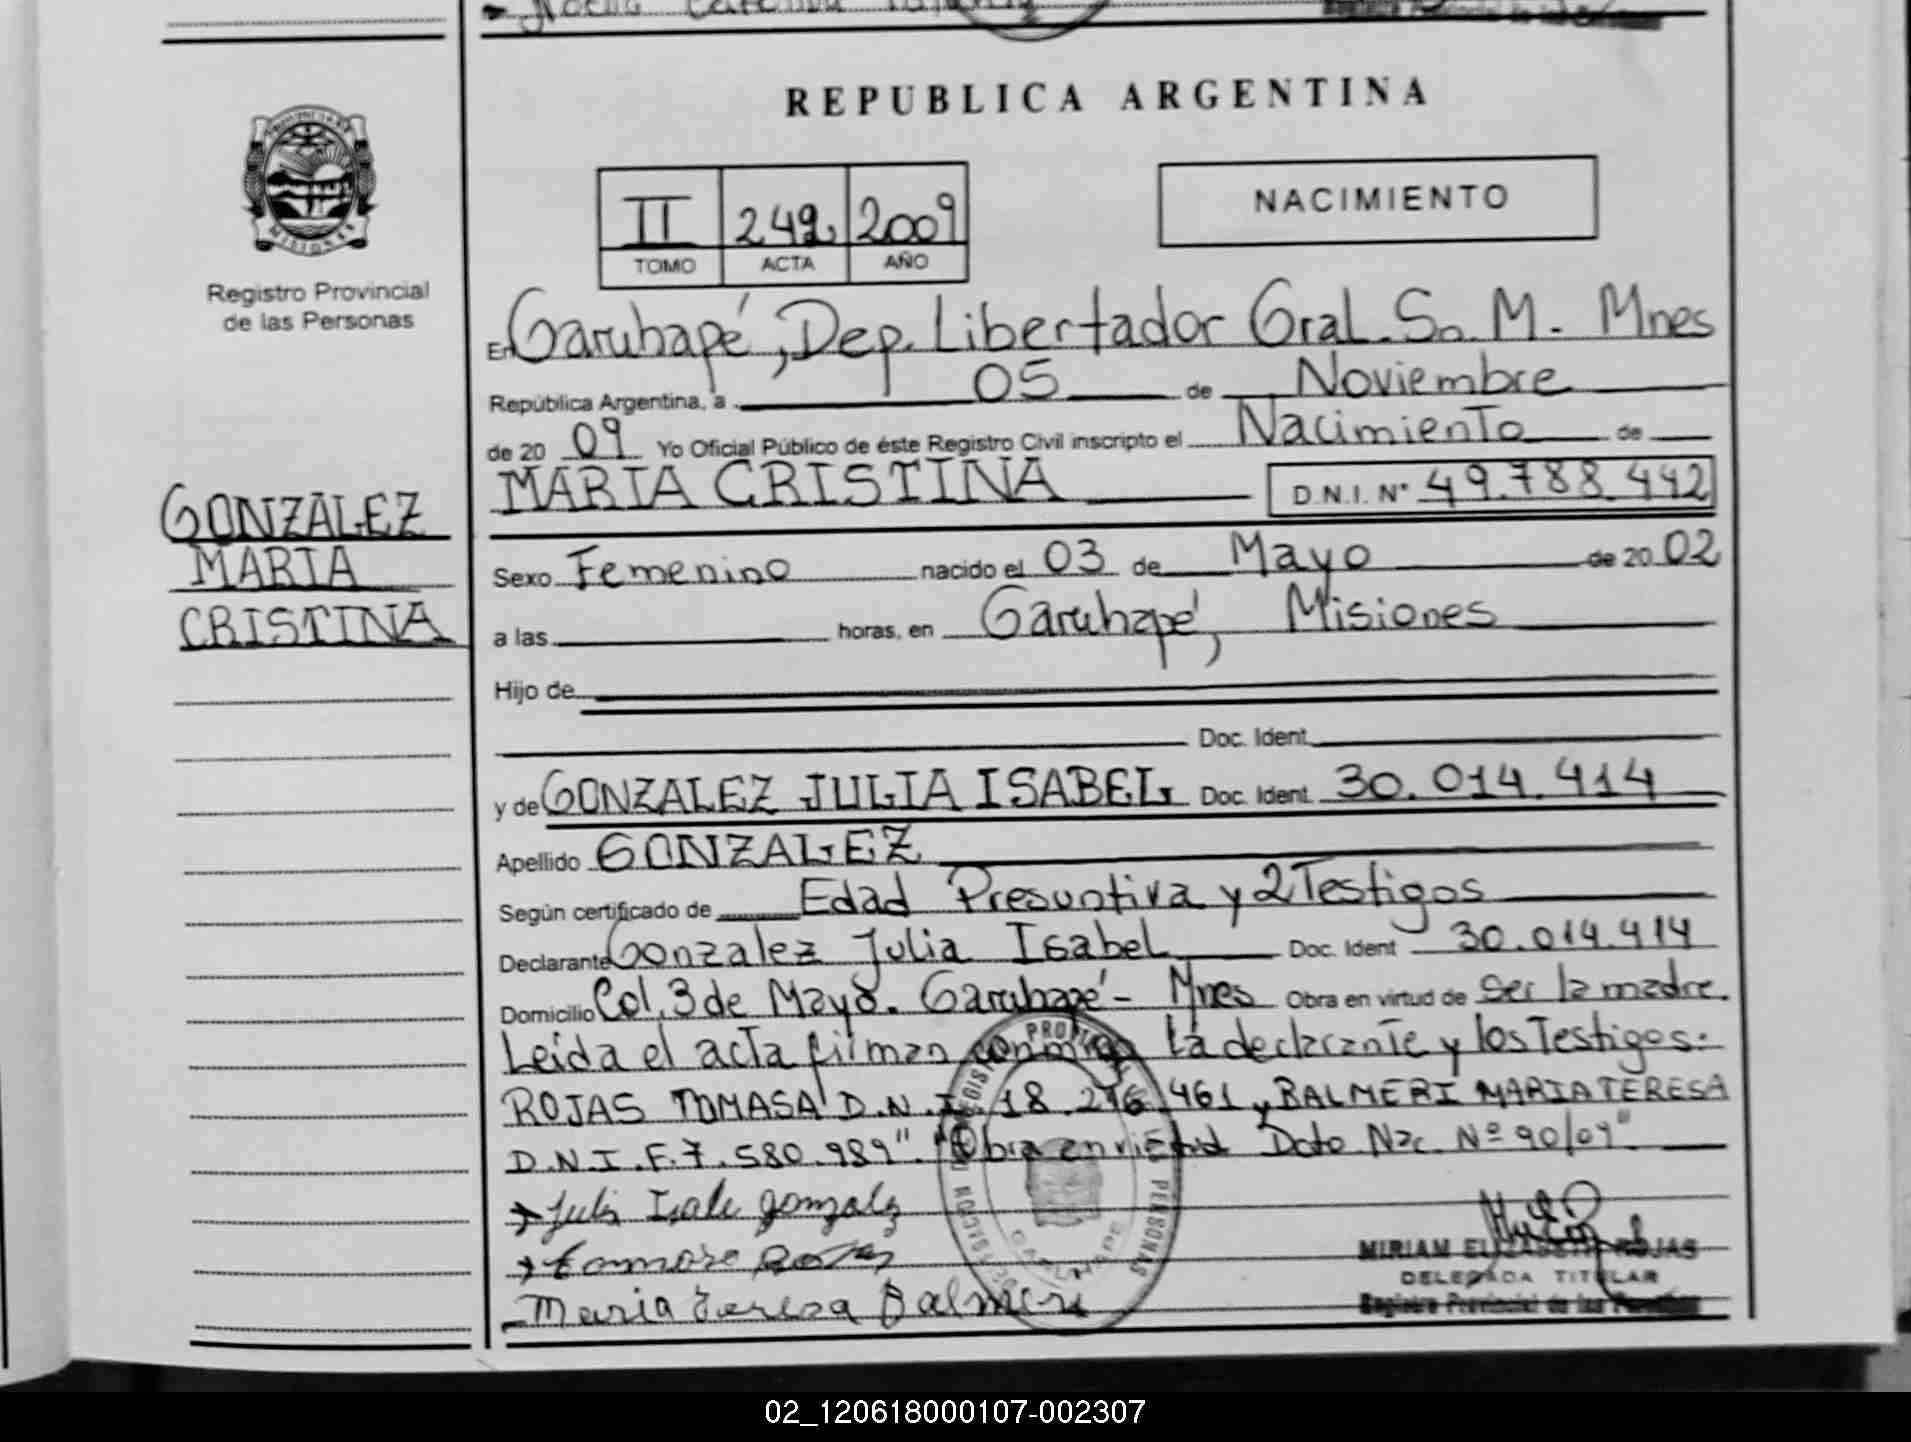 REPUBLICA ARGENTINA
MISIONES
Registro Provincial
de las Personas
II 249 2009
TOMO ACTA AÑO
NACIMIENTO
En Garuhapé, Dep. Libertador Gral. Sn. M. Mnes
República Argentina, a 05 de Noviembre
de 20 09 Yo Oficial Público de éste Registro Civil inscripto el Nacimiento de
MARIA CRISTINA D.N.I. Nº 49.788.442
GONZALEZ
MARIA
CRISTINA
Sexo Femenino nacido el 03 de Mayo de 20 02
a las horas, en Garuhapé, Misiones
Hijo de
Doc. Ident.
y de GONZALEZ JULIA ISABEL Doc. Ident. 30.014.414
Apellido GONZALEZ
Según certificado de Edad Presuntiva y 2 Testigos
Declarante Gonzalez Julia Isabel Doc. Ident 30.014.414
Domicilio Col. 3 de Mayo. Garuhapé - Mnes Obra en virtud de Ser la madre.
Leida el acta firman conmigo la declarante y los Testigos:
ROJAS TOMASA D.N.I. 18.216.461 y BALMERI MARIA TERESA
D.N.I. F. 7.580.989". "Obra en virtud Dcto Nac. Nº 90/09"
Julia Isabel Gonzalez
Tomasa Rojas
Maria Teresa Balmeri
MIRIAM ELIZABETH ROJAS
DELEGADA TITULAR
Registro Provincial de las Personas
02_120618000107-002307